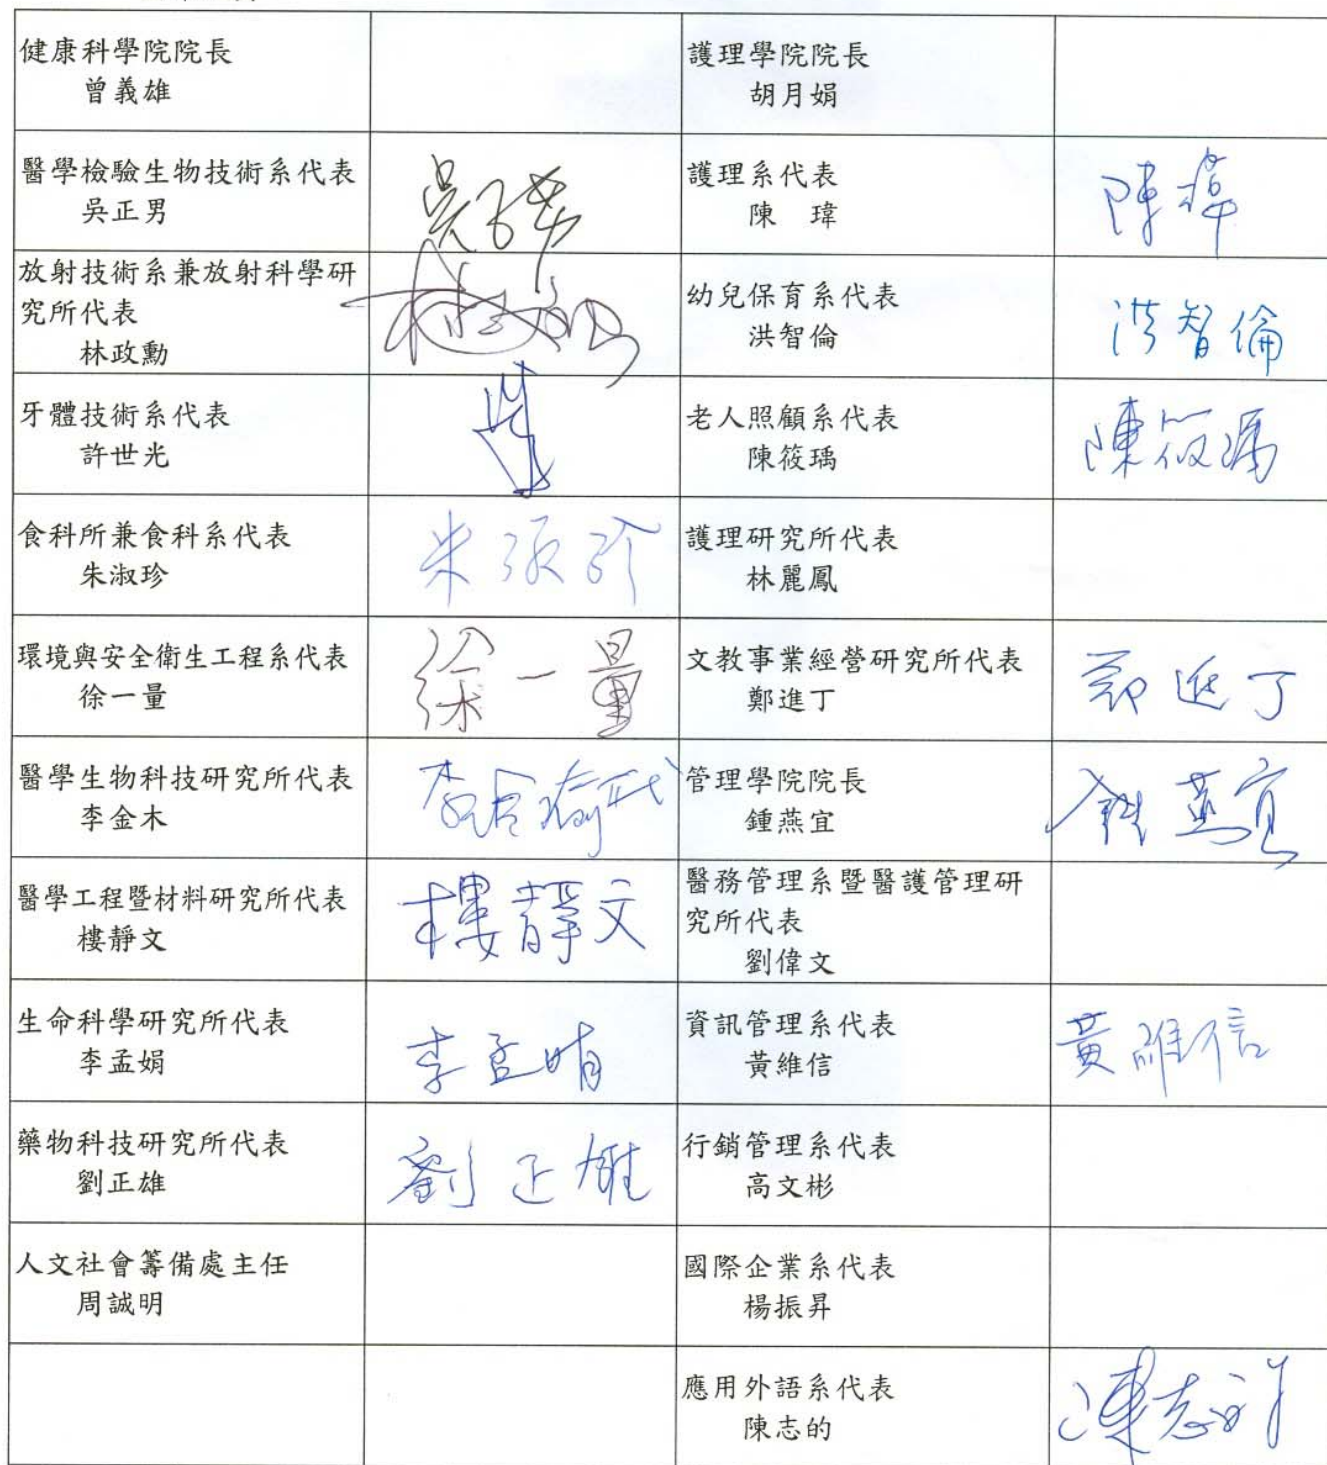 健康科學院院長
曾義雄
護理學院院長
胡月娟
醫學檢驗生物技術系代表
吳正男
護理系代表
陳 瑋
陳瑋
放射技術系兼放射科學研
究所代表
林政勳
幼兒保育系代表
洪智倫
洪智倫
牙體技術系代表
許世光
老人照顧系代表
陳筱瑀
陳筱瑀
食科所兼食科系代表
朱淑珍
朱淑珍
護理研究所代表
林麗鳳
環境與安全衛生工程系代表
徐一量
徐一量
文教事業經營研究所代表
鄭進丁
鄭進丁
醫學生物科技研究所代表
李金木
管理學院院長
鍾燕宜
鍾燕宜
醫學工程暨材料研究所代表
樓靜文
樓靜文
醫務管理系暨醫護管理研
究所代表
劉偉文
生命科學研究所代表
李孟娟
李孟娟
資訊管理系代表
黃維信
黃維信
藥物科技研究所代表
劉正雄
劉正雄
行銷管理系代表
高文彬
人文社會籌備處主任
周誠明
國際企業系代表
楊振昇
應用外語系代表
陳志的